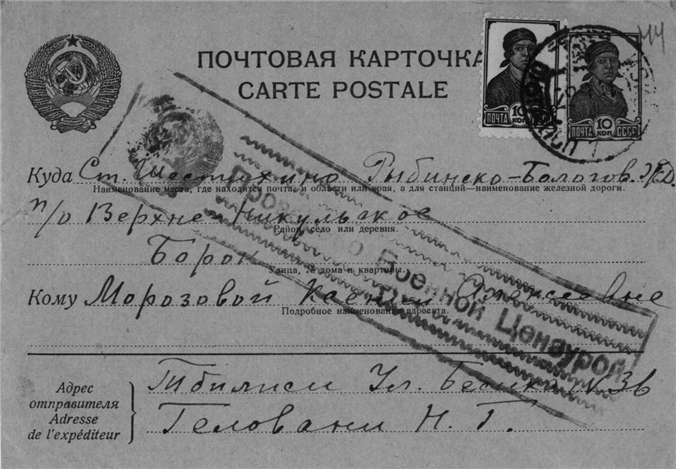 ПОЧТОВАЯ КАРТОЧКА
CARTE POSTALE
44
ПОЧТА 10 КОП.
ПОЧТА 10 КОП. СССР
Куда Ст. Шестихино Рыбинско-Бологов. ж.д.
Наименование места, где находится почта, и области или края, а для станций—наименование железной дороги.
п/о Верхне Никульское
Район, село или деревня.
Борок
Улица, № дома и квартиры.
Кому Морозовой Ксении Алексеевне
Подробное наименование адресата.
Просмотрено Военной Цензурой
Адрес отправителя
Adresse de l'expéditeur
Тбилиси Ул. Бесики
Геловани Н. Г.